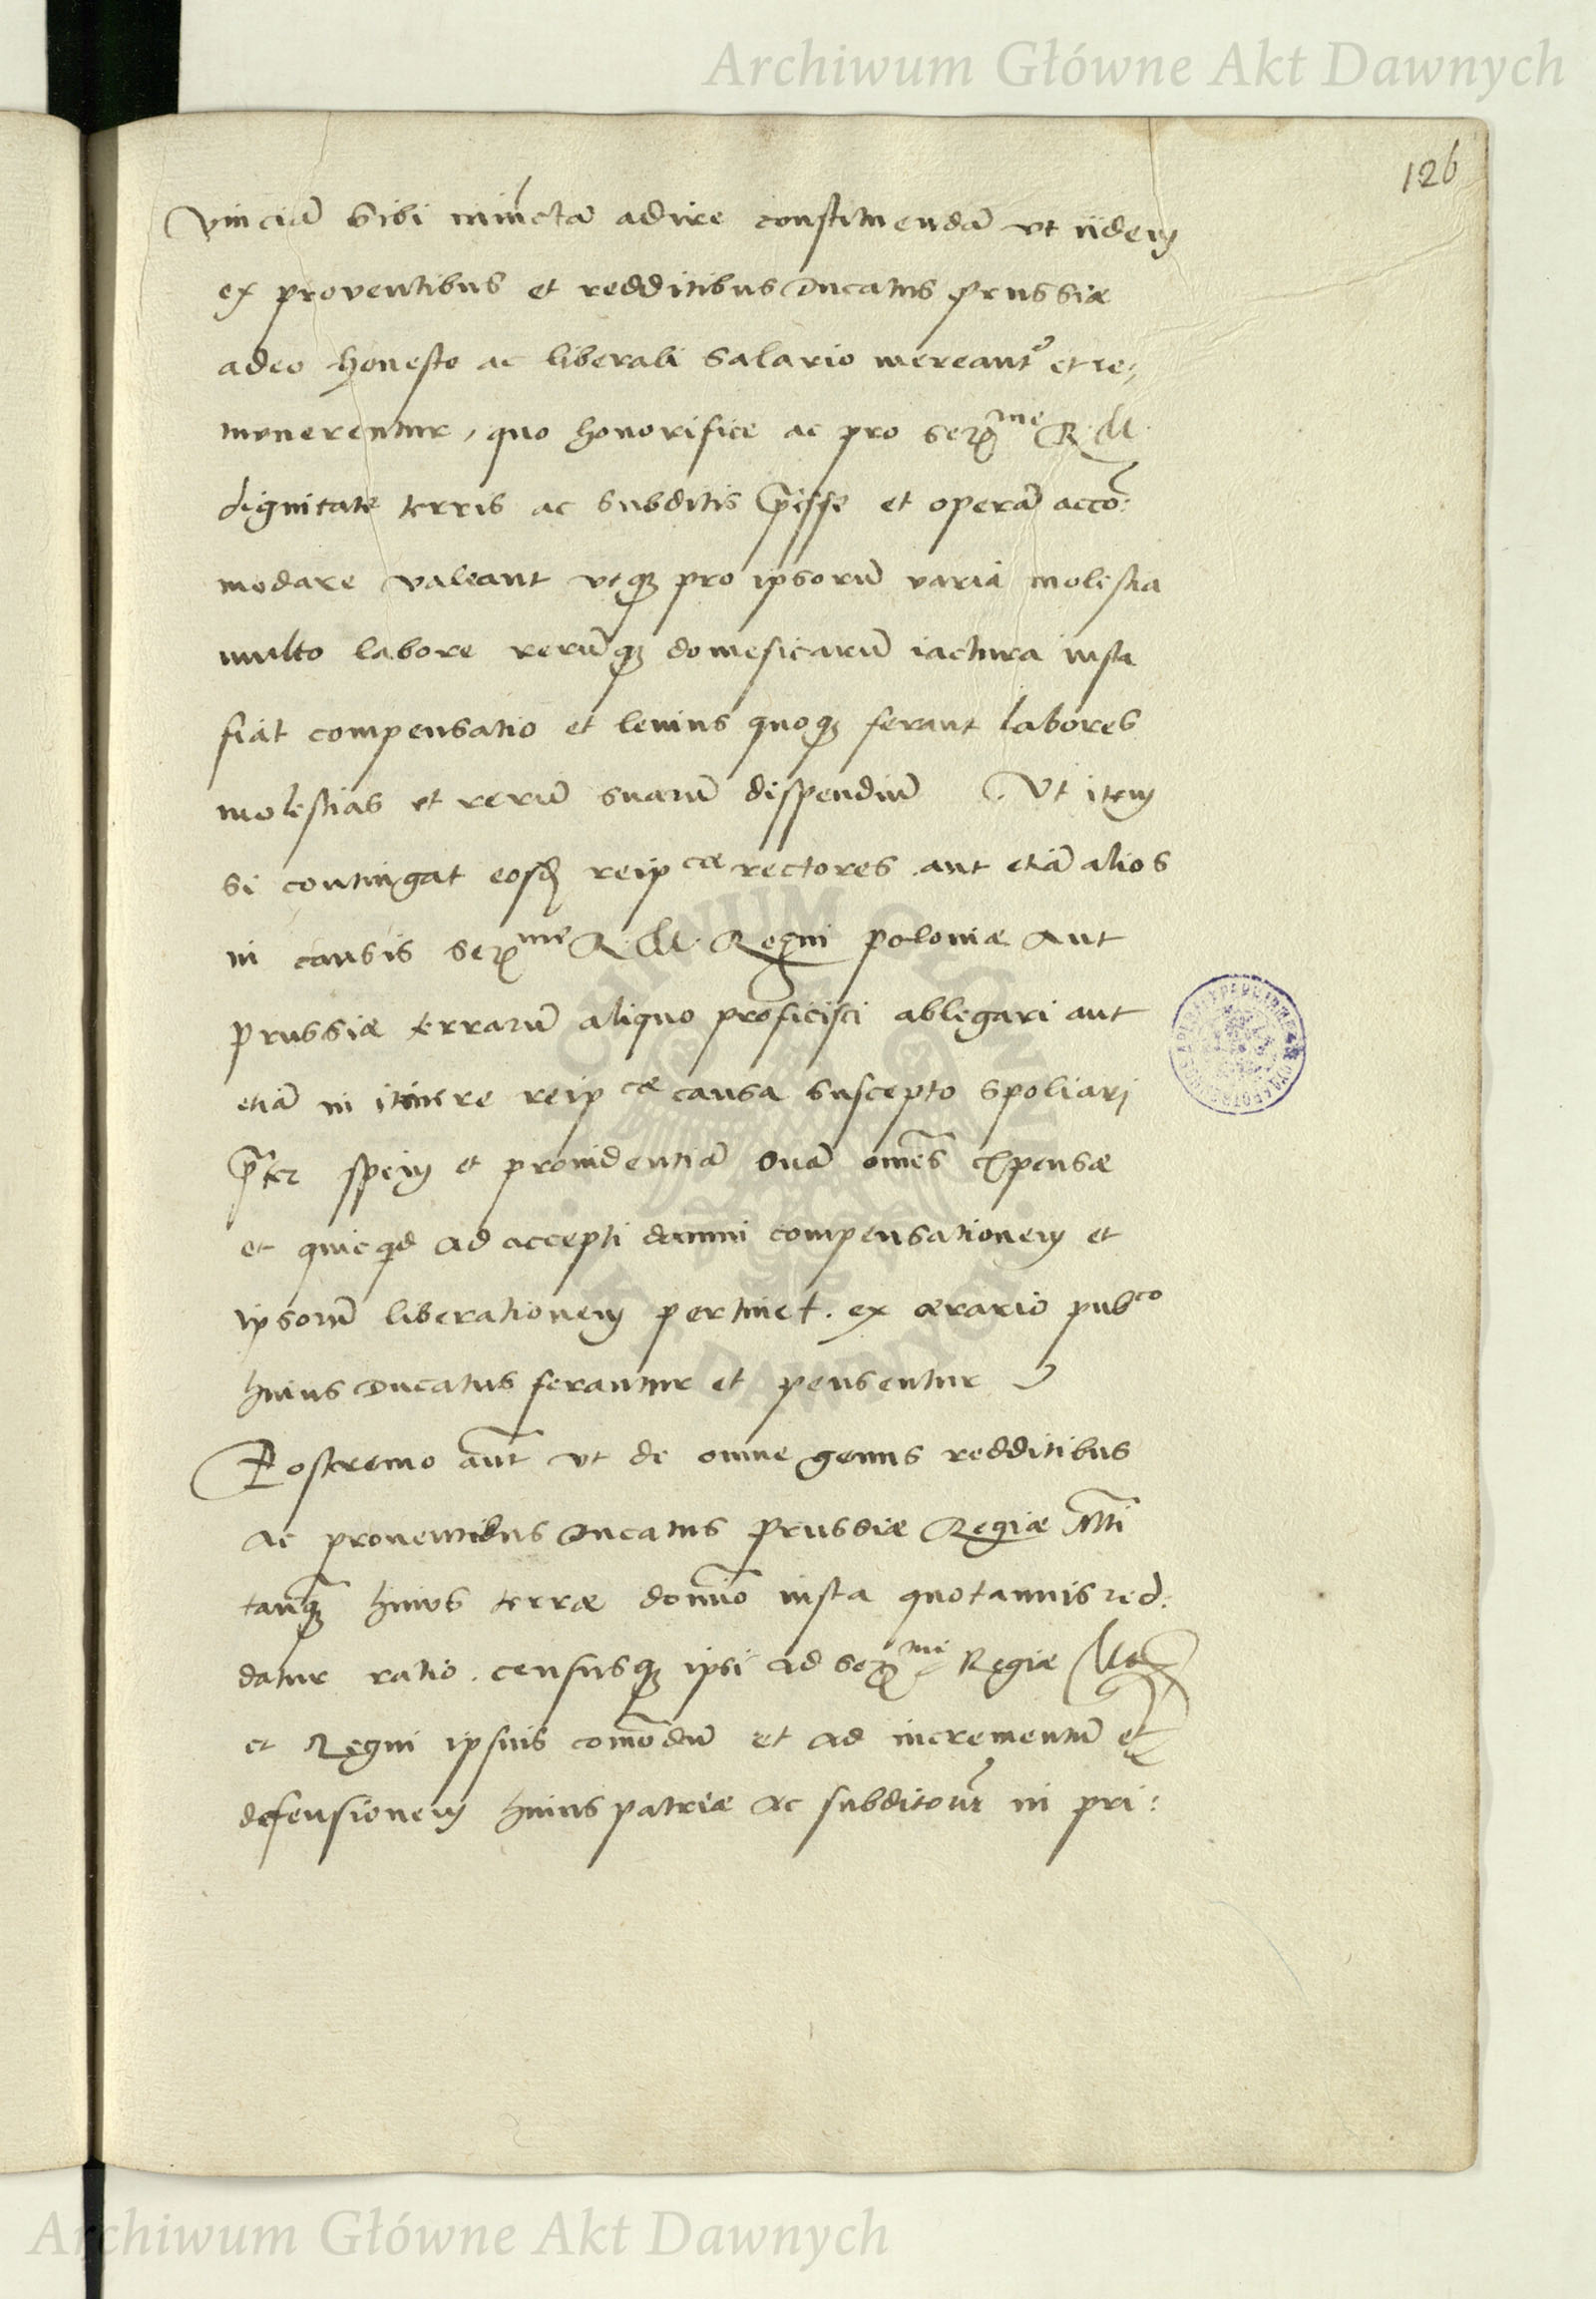 Archiwum Główne Akt Dawnych
126
vinciā sibi iniūctā adire constituendā vt iidem
ex proventibus et redditibus Ducatus Prussiæ
adeo honesto ac liberali salario mereant͛ et re„
munerentur, quo honorifice ac pro serᵐᵉ R. M.
dignitate terris ac subditis p̄esse et operā acco͞:
modare valeant vtq; pro ipsorū variā molestia
multo labore rerūq; domesicarū iactura iusta
fiat compensatio et lenius quoq; ferant labores
molestias et rerū suarū dispendiū Vt item
si contingat eosd͛ reipᶜæ rectores aut etiā alios
in causis serᵐᵉ R. M. Regni poloniæ aut
prussiæ terrarū aliquo proficisci ablegari aut
etiā in itinere reipᶜæ causa suscepto spoliari
p̄ter spem et providentiā suā omēs expensæ
et quicqd ad accepti damni compensationem et
ipsorū liberationem pertinet. ex ærario pubᶜᵒ
huius Ducatus ferantur et pensentur
Postremo aūt vt de omne genus redditibus
ac proventibus Ducatus Prussiæ Regiæ Mᵗⁱ
tanq̄ huius terræ domīo iusta quotannis red:
datur ratio. censusq; ipsi ad serᵐᵉ Regiæ Mᵗⁱˢ
et Regni ipsius comōdū et ad incrementū et
defensionem huius patriæ ac subditorū in pri:
Archiwum Główne Akt Dawnych